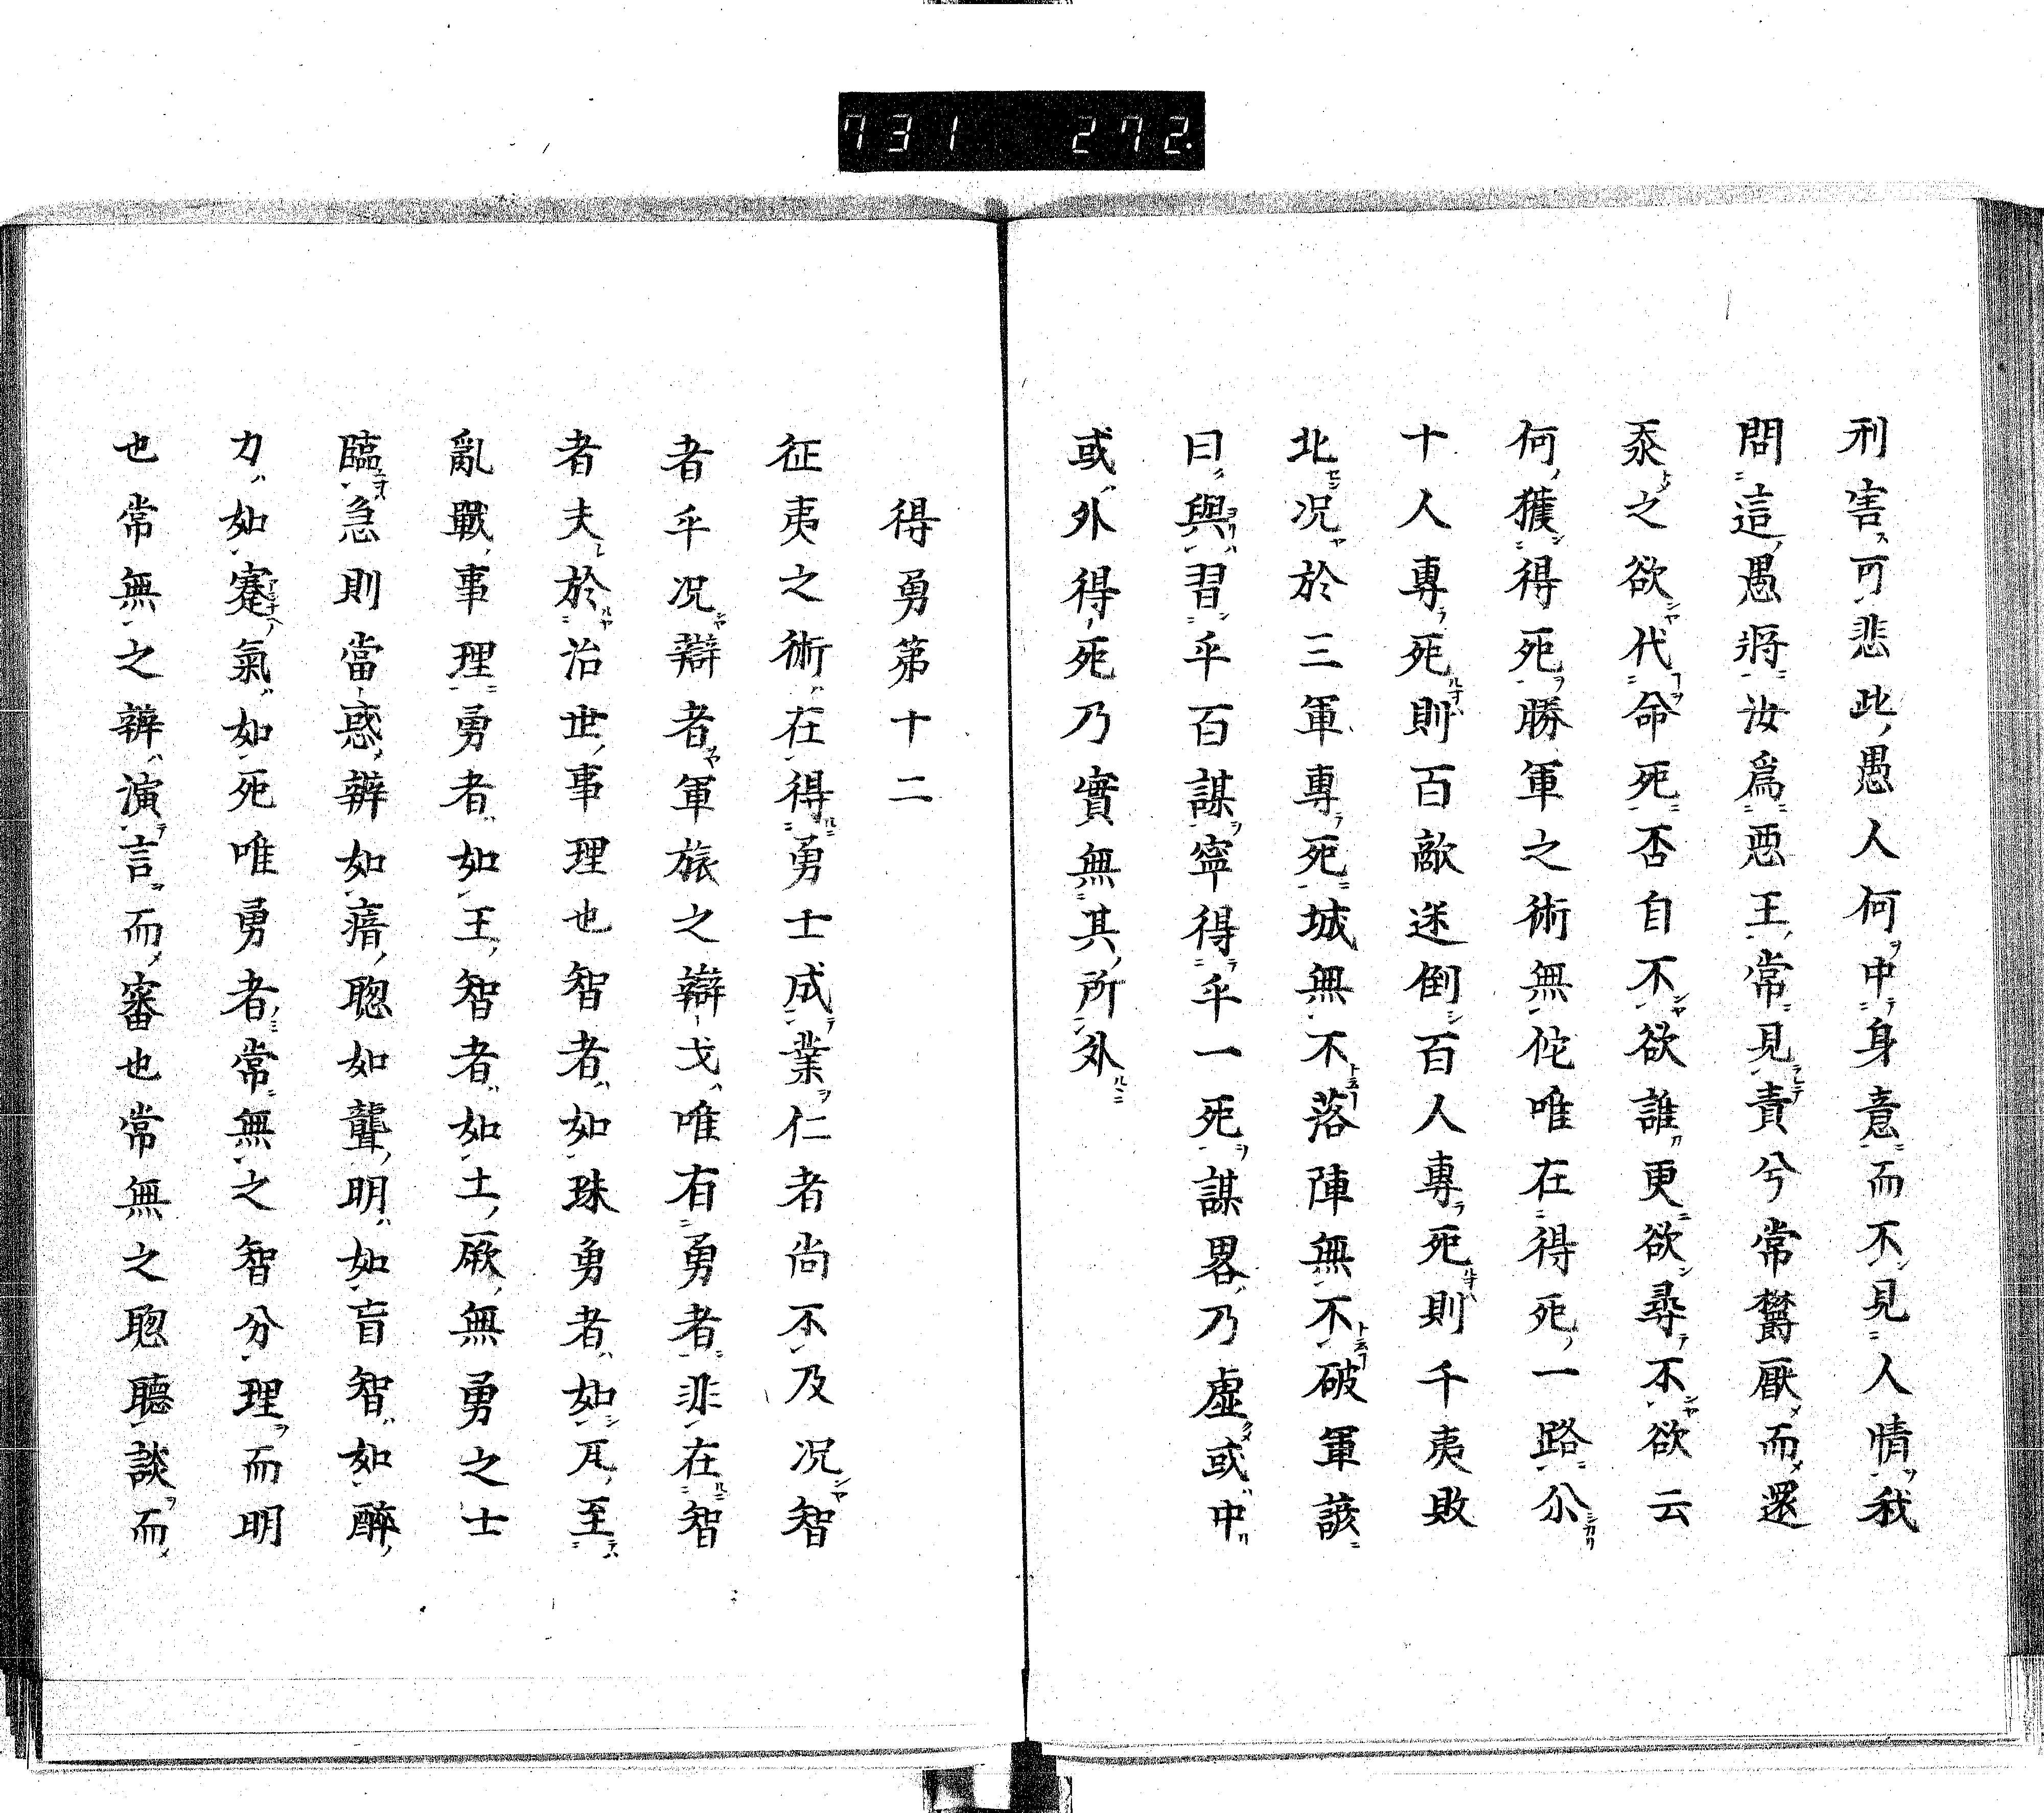 731 272.
利害可悲此愚人何中身意而不見人情我
問這愚将汝爲悪王常見責兮常欝厭而還
忝之欲代命死否自不欲誰更欲尋不欲云
何獲得死勝軍之術無佗唯在得死一路尒
十人專死則百敵迷倒百人專死則千夷敗
北况於三軍專死城無不落陣無不破軍該
曰與習乎百謀寧得乎一死謀畧乃虚或中
或外得死乃實無其所外
得勇第十二
征夷之術在得勇士成業仁者尚不及况智
者乎况辯者軍旅之辯戈唯有勇者非在智
者夫於治世事理也智者如珠勇者如瓦至
亂戰事理勇者如王智者如土厥無勇之士
臨急則當惑辨如瘖聡如聾明如盲智如醉
力如蹇氣如死唯勇者常無之智分理而明
也常無之辨演言而審也常無之聡聽談而